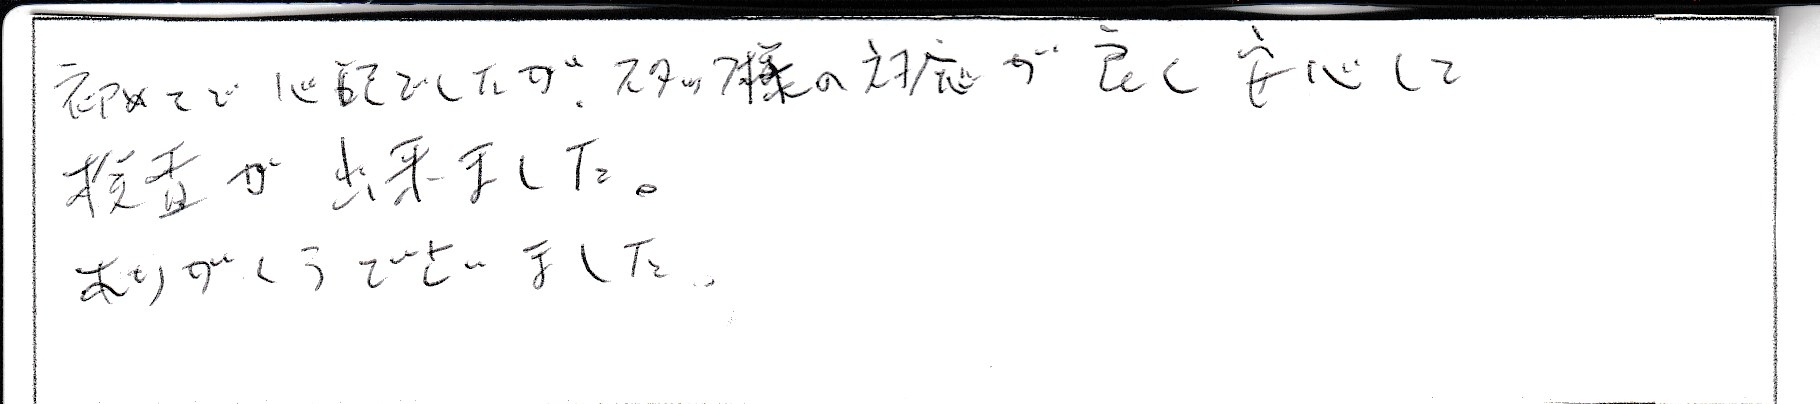 初めてで心配でしたが、スタッフ様の対応が良く安心して
検査が出来ました。
ありがとうございました。